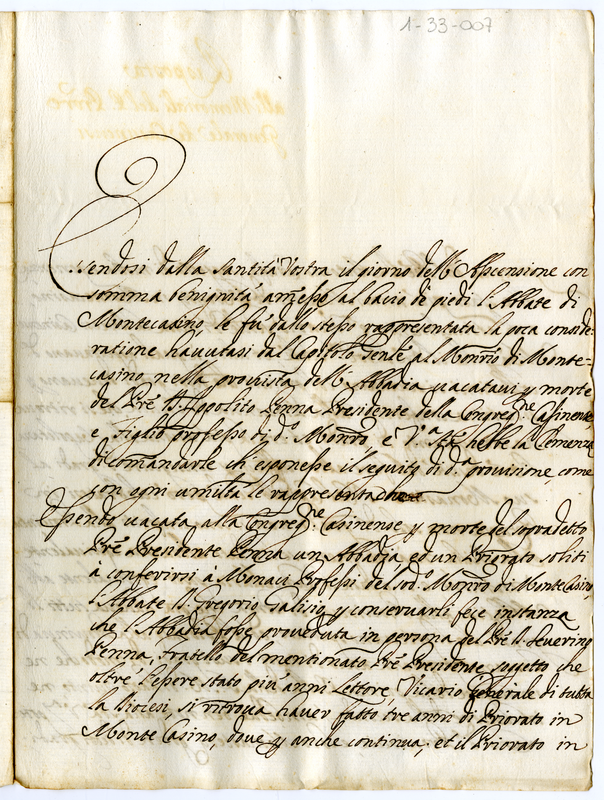 1-33-007
Essendosi dalla Santità Vostra il giorno dell'Ascensione con
somma benignità am̃esso al bacio de piedi l'Abbate di
Montecasino, le fù dallo stesso rappresentata la poca conside-
ratione havutasi dal Capitolo Gen̄le al Monrō di Monte-
casino, nella provista dell'Abbadia vacatavi p morte
del Prē D. Ippolito Penna Presidente della Congreg.ne Casinense
e Figlio professo di d.o Monrō, e V.a S.tà hebbe la Clemenza
di comandarle ch'esponesse il seguito di d.a provisione, come
con ogni umiltà le rappresenta
Essendo vacata alla Congreg.ne Casinense p morte del sopradetto
Prē Presidente Penna un Abbadia, ed un Priorato soliti
à conferirsi à Monaci Professi del sod.o Monrō di Monte Casino,
l'Abbate D. Gregorio Galisio p conservarli fece instanza
che l'Abbadia fosse proveduta in persona del Prē D. Severino
Penna, fratello del mentionato Prē Presidente, suggetto che
oltre l'essere stato più anni Lettore, Vicario Generale di tutta
la Diocesi, si ritrova haver fatto tre anni di Priorato in
Monte Casino, dove p anche continua; et il Priorato in